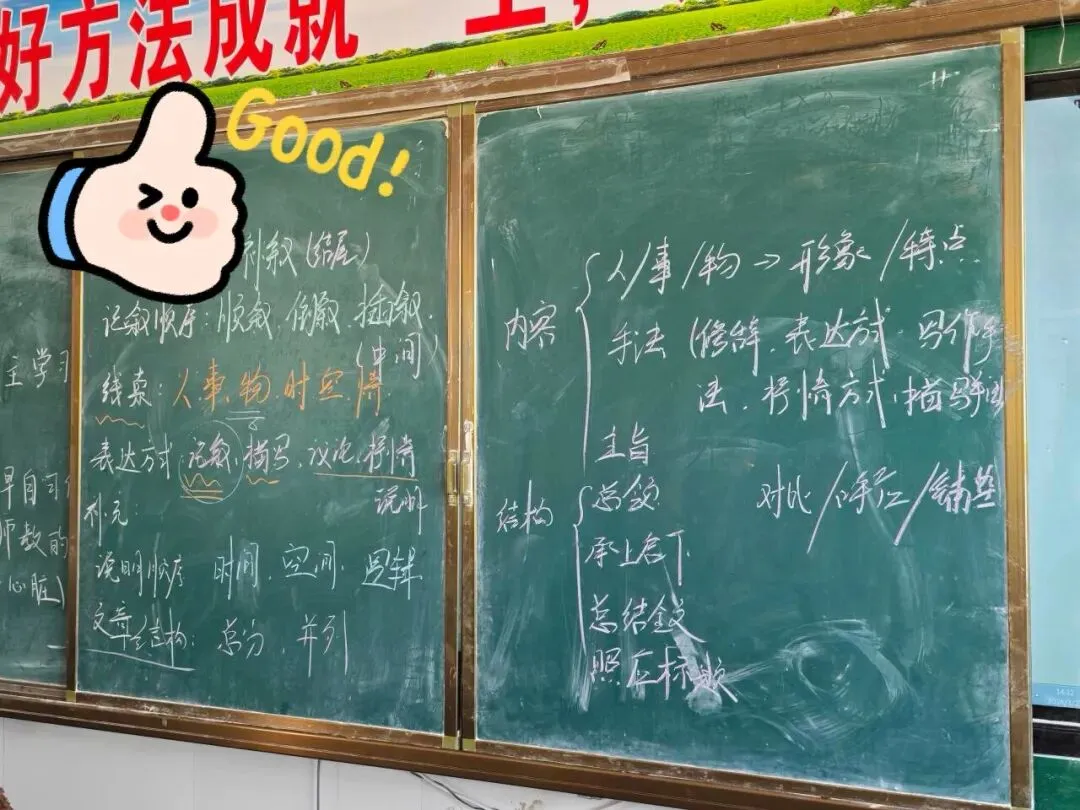 好方法成就
Good!
叙(结尾)
记叙顺序:顺叙、倒叙、插叙
(中间)
线索:人、事、物、时、空、情
表达方式 记叙、描写、议论、抒情
说明
补充:
说明顺序 时间、空间、逻辑
文章结构:总分、并列
主学习
早自习
师教的
心脏)
内容
人/事/物→形象/特点
手法(修辞、表达方式、写作手
法、抒情方式、描写手法
主旨
结构
总领 对比/呼应/铺垫
承上启下
总结全文
照应标题
14:12